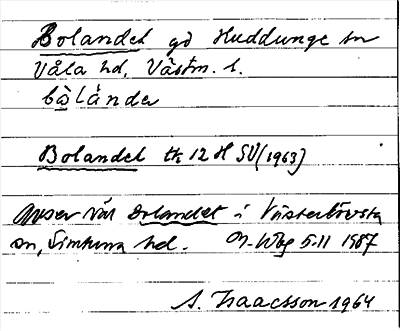 Bolandet gd Huddunge sn
Våla hd, Västm. l.
bòlándẹ
Bolandet tk 12 H SV (1963)
Avser väl Bolandet i Västerlövsta
sn, Simtuna hd. 5.11 1987
S. Isaacsson 1964